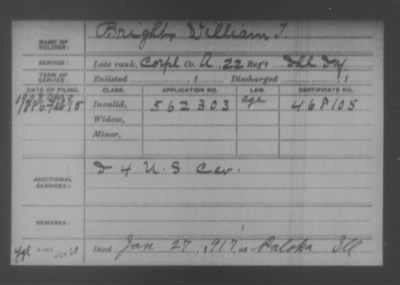 NAME OF SOLDIER: Bright, William T.
SERVICE: Late rank, Corpl Co. A, 22 Reg't Ill Inf
TERM OF SERVICE: Enlisted , 1 Discharged , 1
DATE OF FILING. CLASS. APPLICATION NO. LAW. CERTIFICATE NO.
Invalid, 562303 Age 468105
Widow,
Minor,
ADDITIONAL SERVICES: D 4 U.S Cav.
REMARKS:
Died Jan 27, 1917, at Patoka Ill